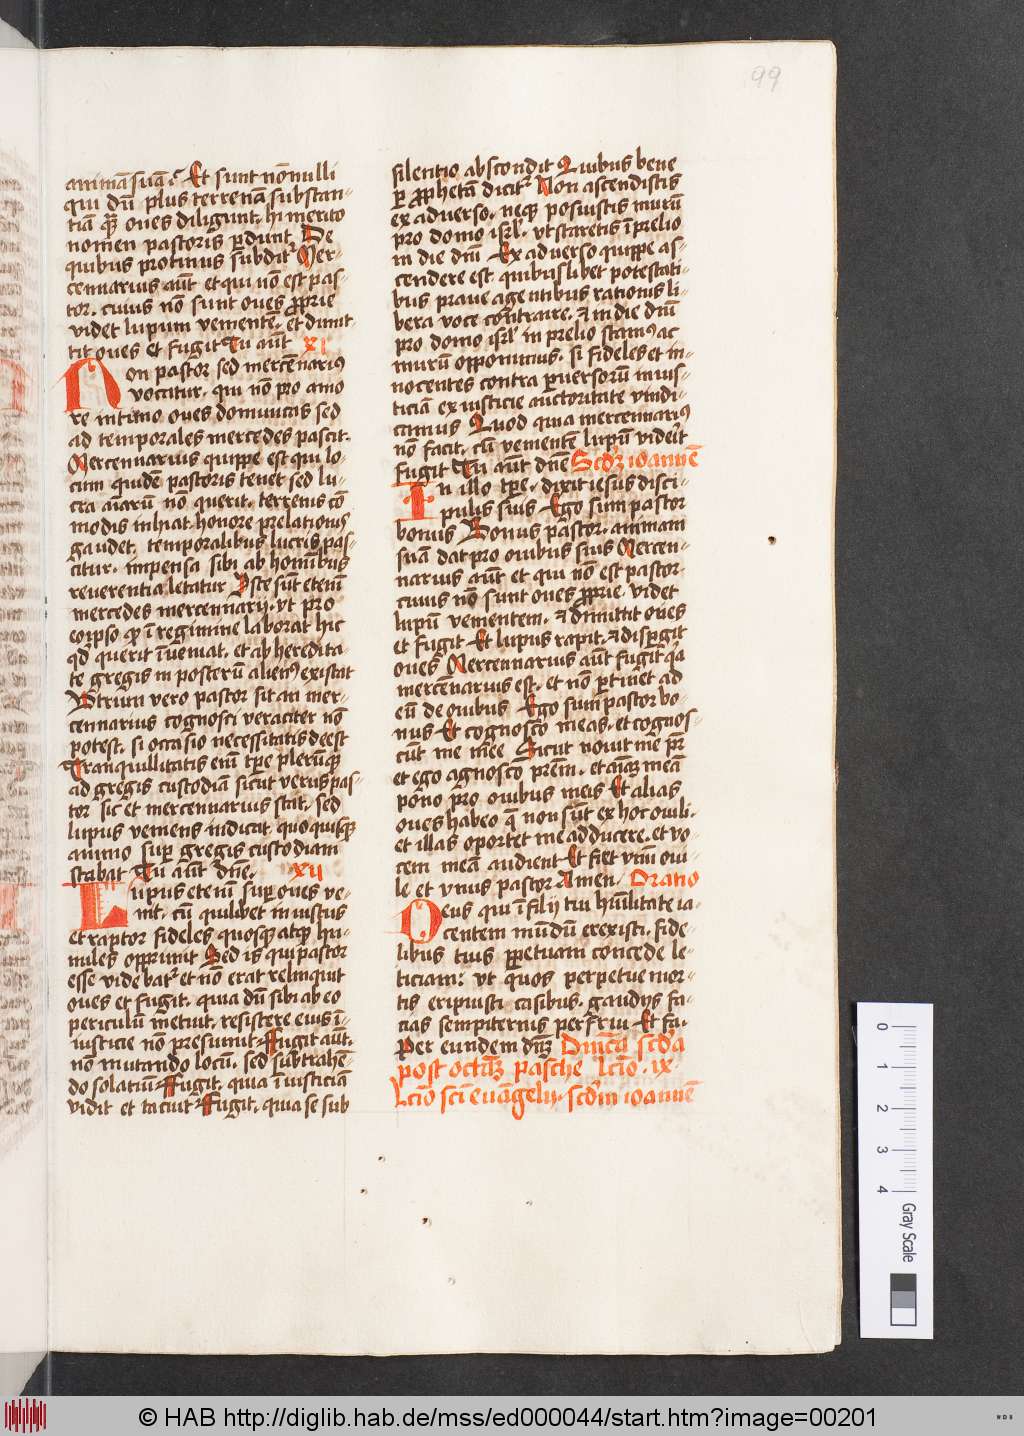 99
animā suā? Et sunt nōnulli
qui dū plus terrenam substan-
tiā quā oues diligunt. hi merito
nomen pastoris ꝑdunt De
quibus protinus subditꝰ Mer-
cennarius aūt et qui nō est pas-
tor. cuius nō sunt oues ꝓprie
videt lupum vementē. et dimit-
tit oues et fugit Tu aūt XI
Non pastor sed mercēnariꝰ
vocatur. qui nō pro amo
re intimo oues dominicas sed
ad temporales mercedes pascit.
Mercennarius quippe est qui lo-
cum quidē pastoris tenet sed lu-
cra aīarū nō querit. terrenis cō
modis inhiat. honore prelationis
gaudet. temporalibus lucris pas-
citur. impensa sibi ab hominibus
reuerentia letatur Iste sūt etenim
mercedes mercennarij. vt pro
eo ipso qꝫ ī regimine laborat hic
qd querit īueniat. et ab heredita-
te gregis in posterū alienꝰ existat
Vtrum vero pastor sit an mer-
cennarius cognosci veraciter nō
potest. si occasio necessitatis deest
Tranquillitatis enī tꝑe plerūqꝫ
ad gregis custodiā sicut verus pas-
tor sic et mercennarius stat. sed
lupus veniens indicat. quo quisqꝫ
animo suꝑ gregis custodiam
stabat Tu aūt dn̄e. XII
Lupus etenī suꝑ oues ve-
nit. cū quilibet iniustus
et raptor fideles quosqꝫ atqꝫ hu-
miles opprimit Sed is qui pastor
esse videbatꝰ et nō erat relinquit
oues et fugit. quia dū sibi ab eo
periculū metuit. resistere eius ī-
iusticie nō presumit. Fugit aūt.
nō mutando locū. sed subtrahē-
do solatiū. Fugit. quia īiusticiam
vidit et tacuit. Fugit. quia se sub
silentio abscondit Quibus bene
ꝑ ꝓphetā dicitꝰ Non ascendistis
ex aduerso. neqꝫ posuistis murū
pro domo isrl̄. vt staretis ī prelio
in die dn̄i Ex aduerso quippe as-
cendere est. quibuslibet potestati-
bus praue agentibus rationis li-
bera voce contraire. & in die dn̄i
pro domo isrl̄ in prelio stamus ac
murū opponimus. si fideles et in-
nocentes contra ꝑuersorū inius-
ticiā ex iusticie auctoritate vindi-
camus Quod quia mercennariꝰ
nō facit. cū vementē lupū viderit
fugit Tu aūt dn̄e Scdꝫ ioannē
In illo tꝑe. dixit iesus disci-
pulis suis Ego sum pastor
bonus Bonus pastor. animam
suā dat pro ouibus suis Mercen-
narius aūt et qui nō est pastor.
cuius nō sunt oues ꝓprie. videt
lupū vementem. & dimittit oues
et fugit Et lupus rapit. & disꝑgit
oues Mercennarius aūt fugit qꝛ
mercēnarius est. et nō ꝑtinet ad
eū de ouibus Ego sum pastor bo-
nus Et cognosco meas. et cognos-
cūt me mee Sicut nouit me pr̄
et ego agnosco prēm. et aīaꝫ meā
pono pro ouibus meis Et alias
oues habeo q̄ non sūt ex hoc ouili.
et illas oportet me adducere. et vo-
cem meā audient Et fiet vnū oui-
le et vnus pastor Amen. Oratio
Deus qui ī filij tui hūilitate ia-
centem mūdū erexisti. fide-
libus tuis ꝑpetuam concede le-
ticiam: vt quos perpetue mor-
tis eripuisti casibus. gaudijs fa-
cias sempiternis perfrui Et fa.
Per eundem dn̄ꝫ Dn̄ica scda
post octauā pasche Lc̄io. ix.
Lc̄io sc̄i euāgelij. scdm ioannē
0 1 2 3 4 Gray Scale
© HAB http://diglib.hab.de/mss/ed000044/start.htm?image=00201